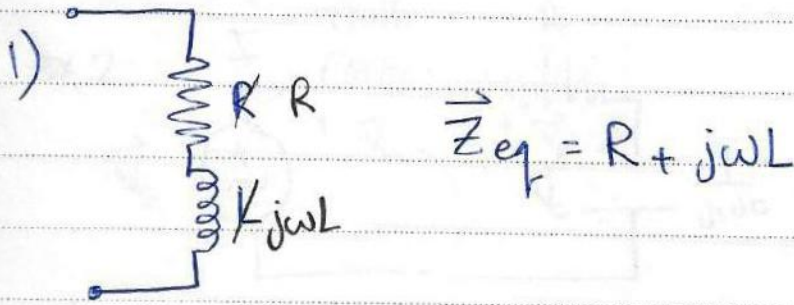 1)
R
jωL
Z⃗eq = R + jωL